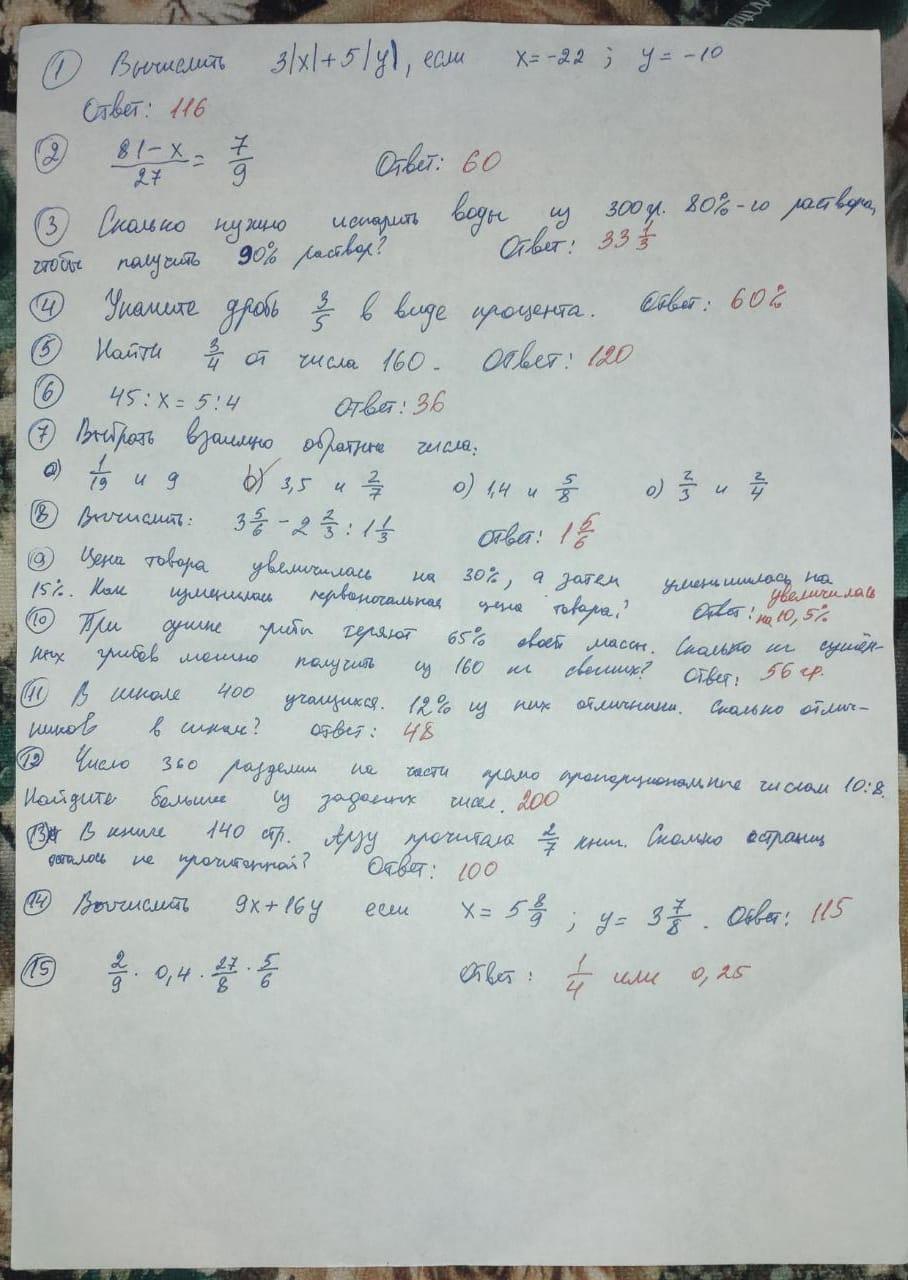 ① Вычислить 3|x|+5|y|, если x=-22 ; y=-10
Ответ: 116
② \frac{81-x}{27} = \frac{7}{9} Ответ: 60
③ Сколько нужно испарить воды из 300 гр. 80%-го раствора,
чтобы получить 90% раствор? Ответ: 33 \frac{1}{3}
④ Укажите дробь \frac{3}{5} в виде процента. Ответ: 60%
⑤ Найти \frac{3}{4} от числа 160. Ответ: 120
⑥ 45:x=5:4 Ответ: 36
⑦ Выбрать взаимно обратные числа.
а) \frac{1}{19} и 9 б) 3,5 и \frac{2}{7} о) 1,4 и \frac{5}{8} о) \frac{2}{3} и \frac{2}{4}
⑧ Вычислить: 3\frac{5}{6} - 2\frac{2}{3} : 1\frac{1}{3} Ответ: 1\frac{5}{6}
⑨ Цена товара увеличилась на 30%, а затем уменшилась на
15%. Как изменилась первоначальная цена товара? Ответ: увеличилась на 10,5%
⑩ При сушке грибы теряют 65% своей массы. Сколько кг сушён-
ных грибов можно получить из 160 кг свежих? Ответ: 56 гр.
⑪ В школе 400 учащихся. 12% из них отличники. Сколько отлич-
ников в школе? Ответ: 48
⑫ Число 360 разделили на части прямо пропорциональные числам 10:8.
Найдите больше из заданных чисел. 200
⑬ В книге 140 стр. Арзу прочитала \frac{2}{7} книги. Сколько страниц
осталось не прочитанной? Ответ: 100
⑭ Вычислить 9x+16y если x= 5\frac{8}{9} ; y= 3\frac{7}{8}. Ответ: 115
⑮ \frac{2}{9} · 0,4 · \frac{27}{8} · \frac{5}{6} Ответ: \frac{1}{4} или 0,25